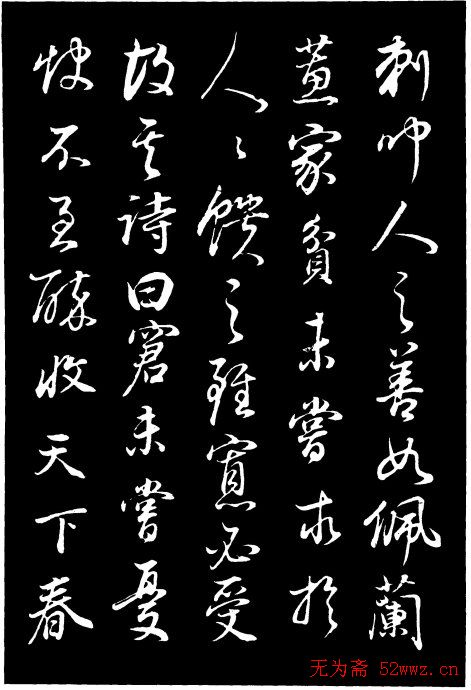 刺聞人之善如佩蘭
蕙家貧未嘗求於
人〻饋之雖寡必受
故其詩曰窘未嘗憂
飲不至醉收天下春
无为斋 52wwz.cn